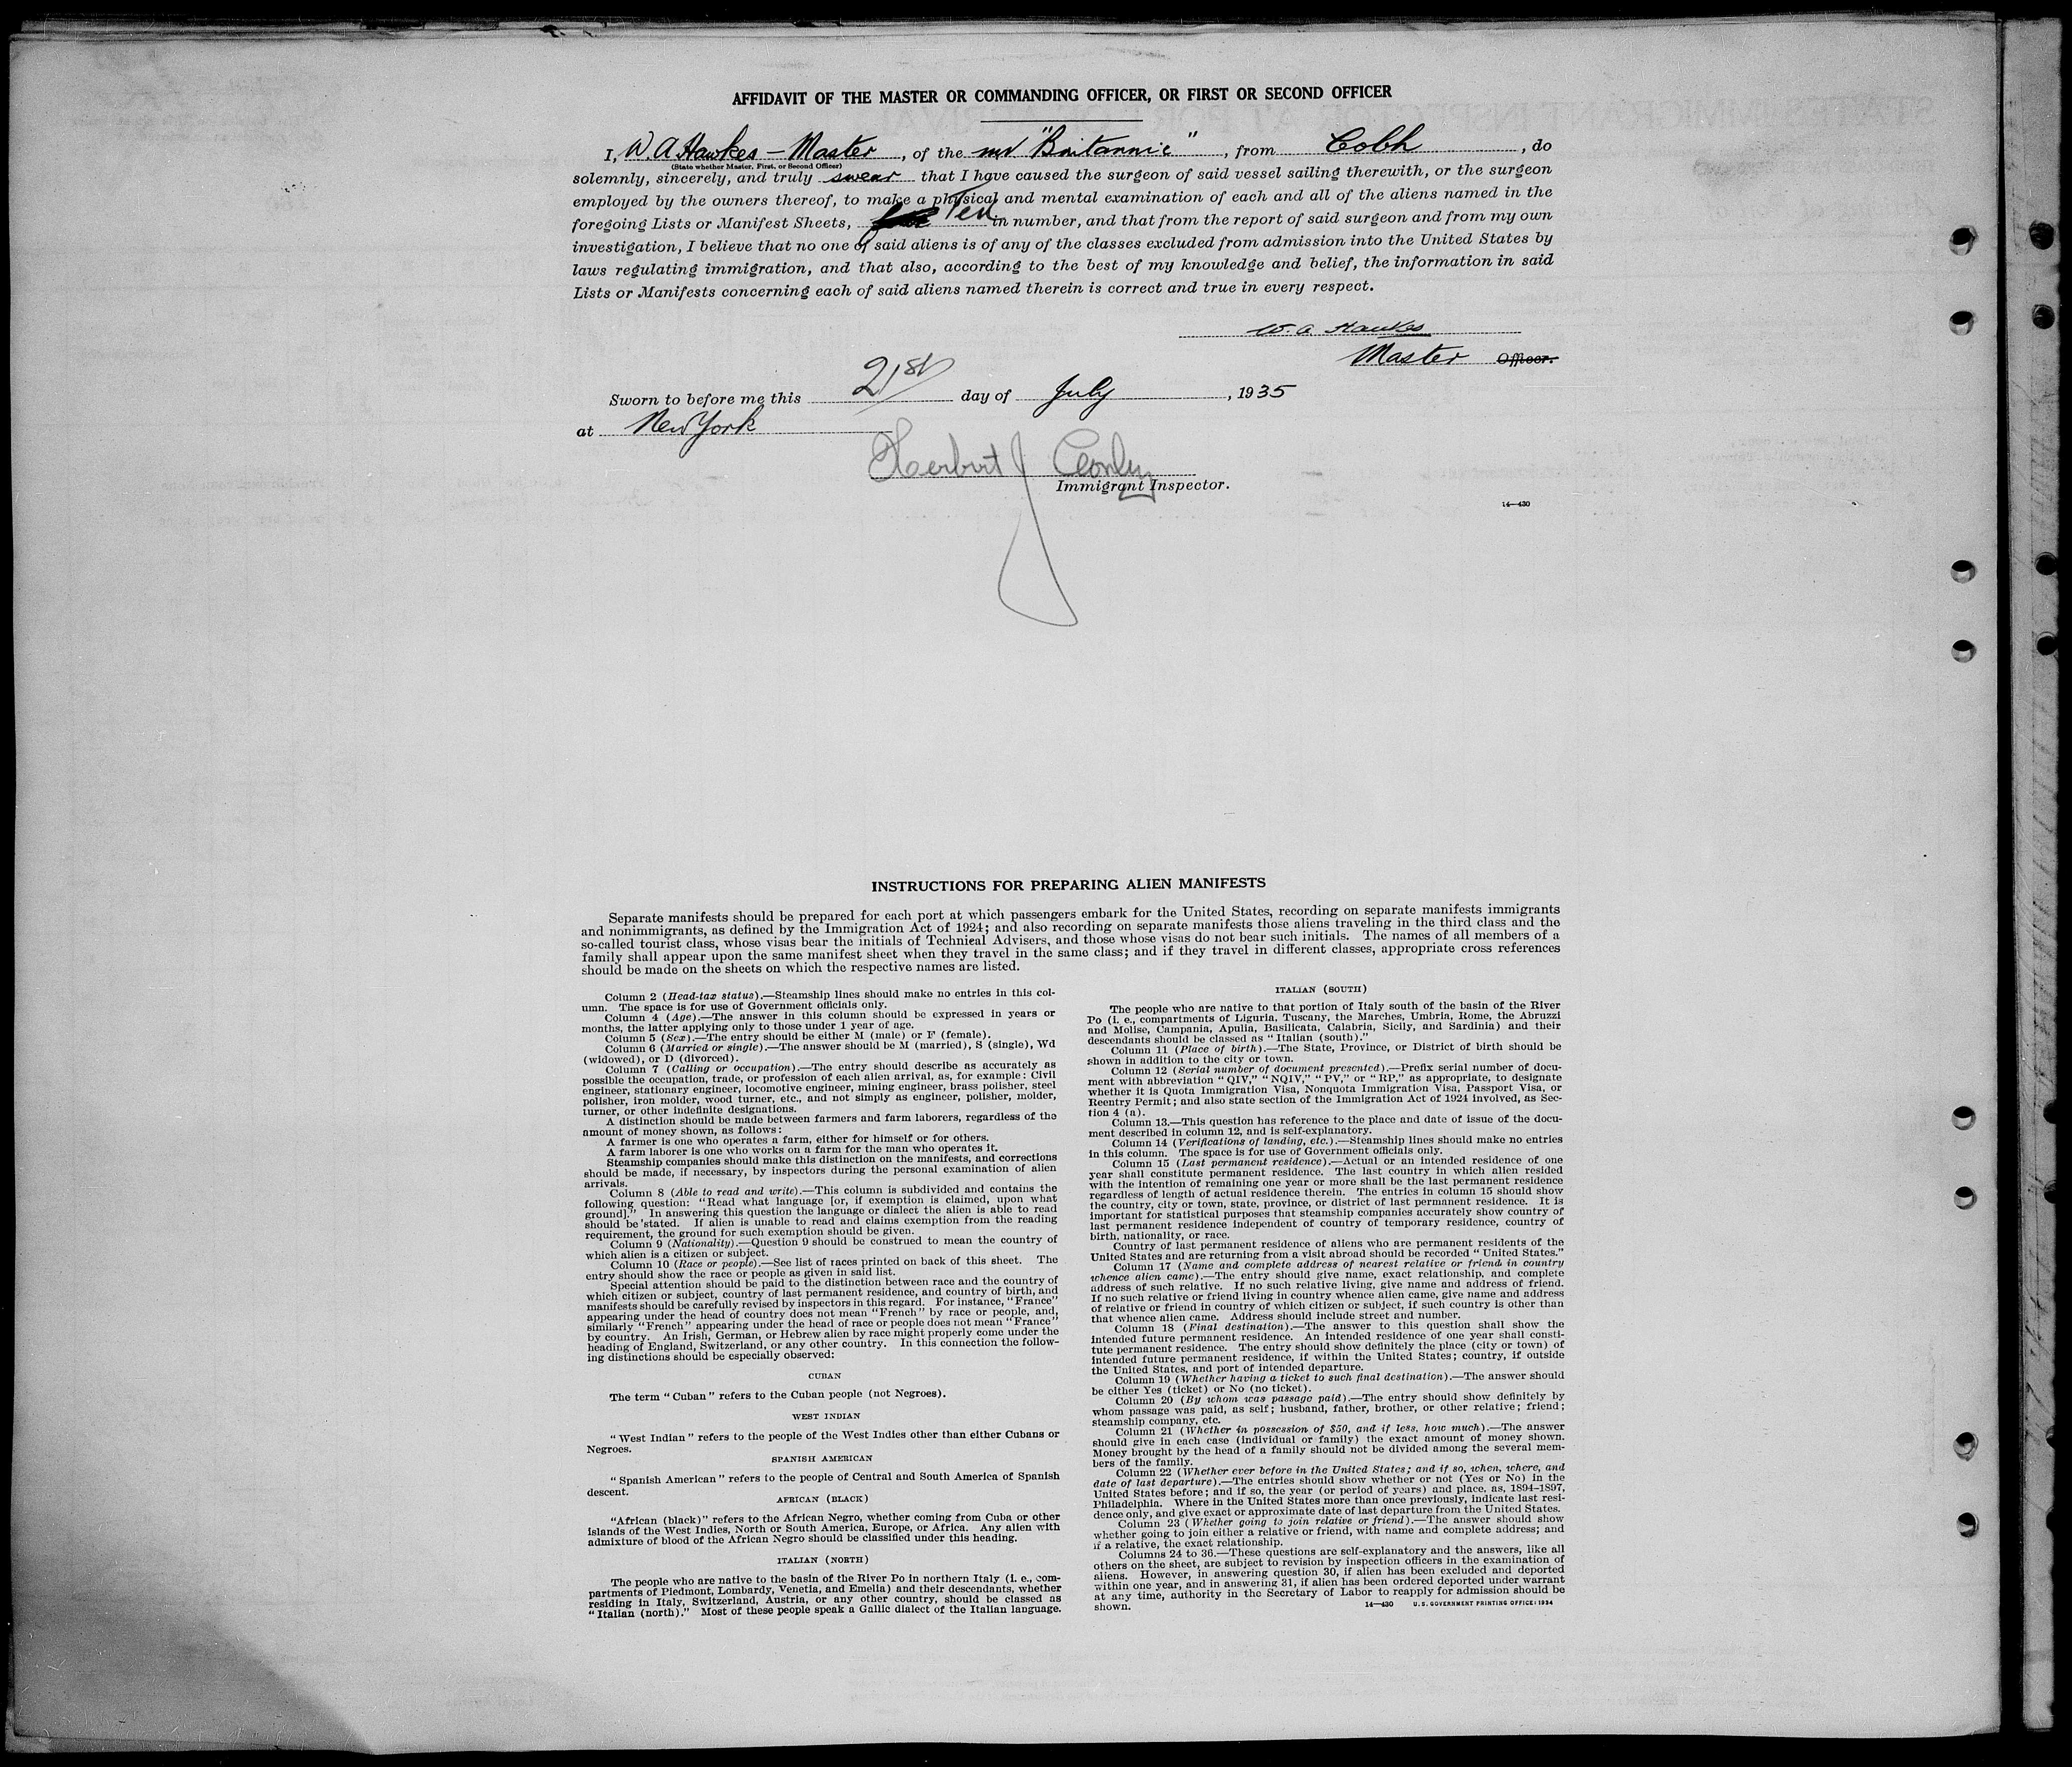 AFFIDAVIT OF THE MASTER OR COMMANDING OFFICER, OR FIRST OR SECOND OFFICER
I, W A Hawkes – Master, of the mv "Britannic", from Cobh, do
(State whether Master, First, or Second Officer)
solemnly, sincerely, and truly swear that I have caused the surgeon of said vessel sailing therewith, or the surgeon
employed by the owners thereof, to make a physical and mental examination of each and all of the aliens named in the
foregoing Lists or Manifest Sheets, Ten in number, and that from the report of said surgeon and from my own
investigation, I believe that no one of said aliens is of any of the classes excluded from admission into the United States by
laws regulating immigration, and that also, according to the best of my knowledge and belief, the information in said
Lists or Manifests concerning each of said aliens named therein is correct and true in every respect.
W. A. Hawkes
Master Officer.
Sworn to before me this 21st day of July, 1935
at New York
Herbert J
Immigrant Inspector.
14—430
INSTRUCTIONS FOR PREPARING ALIEN MANIFESTS
Separate manifests should be prepared for each port at which passengers embark for the United States, recording on separate manifests immigrants
and nonimmigrants, as defined by the Immigration Act of 1924; and also recording on separate manifests those aliens traveling in the third class and the
so-called tourist class, whose visas bear the initials of Technical Advisers, and those whose visas do not bear such initials. The names of all members of a
family shall appear upon the same manifest sheet when they travel in the same class; and if they travel in different classes, appropriate cross references
should be made on the sheets on which the respective names are listed.
Column 2 (Head-tax status).—Steamship lines should make no entries in this col-
umn. The space is for use of Government officials only.
Column 4 (Age).—The answer in this column should be expressed in years or
months, the latter applying only to those under 1 year of age.
Column 5 (Sex).—The entry should be either M (male) or F (female).
Column 6 (Married or single).—The answer should be M (married), S (single), Wd
(widowed), or D (divorced).
Column 7 (Calling or occupation).—The entry should describe as accurately as
possible the occupation, trade, or profession of each alien arrival, as, for example: Civil
engineer, stationary engineer, locomotive engineer, mining engineer, brass polisher, steel
polisher, iron molder, wood turner, etc., and not simply as engineer, polisher, molder,
turner, or other indefinite designations.
A distinction should be made between farmers and farm laborers, regardless of the
amount of money shown, as follows:
A farmer is one who operates a farm, either for himself or for others.
A farm laborer is one who works on a farm for the man who operates it.
Steamship companies should make this distinction on the manifests, and corrections
should be made, if necessary, by inspectors during the personal examination of alien
arrivals.
Column 8 (Able to read and write).—This column is subdivided and contains the
following question: "Read what language [or, if exemption is claimed, upon what
ground]." In answering this question the language or dialect the alien is able to read
should be stated. If alien is unable to read and claims exemption from the reading
requirement, the ground for such exemption should be given.
Column 9 (Nationality).—Question 9 should be construed to mean the country of
which alien is a citizen or subject.
Column 10 (Race or people).—See list of races printed on back of this sheet. The
entry should show the race or people as given in said list.
Special attention should be paid to the distinction between race and the country of
which citizen or subject, country of last permanent residence, and country of birth, and
manifests should be carefully revised by inspectors in this regard. For instance, "France"
appearing under the head of country does not mean "French" by race or people, and,
similarly "French" appearing under the head of race or people does not mean "France"
by country. An Irish, German, or Hebrew alien by race might properly come under the
heading of England, Switzerland, or any other country. In this connection the follow-
ing distinctions should be especially observed:
CUBAN
The term "Cuban" refers to the Cuban people (not Negroes).
WEST INDIAN
"West Indian" refers to the people of the West Indies other than either Cubans or
Negroes.
SPANISH AMERICAN
"Spanish American" refers to the people of Central and South America of Spanish
descent.
AFRICAN (BLACK)
"African (black)" refers to the African Negro, whether coming from Cuba or other
islands of the West Indies, North or South America, Europe, or Africa. Any alien with
admixture of blood of the African Negro should be classified under this heading.
ITALIAN (NORTH)
The people who are native to the basin of the River Po in northern Italy (i. e., com-
partments of Piedmont, Lombardy, Venetia, and Emelia) and their descendants, whether
residing in Italy, Switzerland, Austria, or any other country, should be classed as
"Italian (north)." Most of these people speak a Gallic dialect of the Italian language.
ITALIAN (SOUTH)
The people who are native to that portion of Italy south of the basin of the River
Po (i. e., compartments of Liguria, Tuscany, the Marches, Umbria, Rome, the Abruzzi
and Molise, Campania, Apulia, Basilicata, Calabria, Sicily, and Sardinia) and their
descendants should be classed as "Italian (south)."
Column 11 (Place of birth).—The State, Province, or District of birth should be
shown in addition to the city or town.
Column 12 (Serial number of document presented).—Prefix serial number of docu-
ment with abbreviation "QIV," "NQIV," "PV," or "RP," as appropriate, to designate
whether it is Quota Immigration Visa, Nonquota Immigration Visa, Passport Visa, or
Reentry Permit; and also state section of the Immigration Act of 1924 involved, as Sec-
tion 4 (a).
Column 13.—This question has reference to the place and date of issue of the docu-
ment described in column 12, and is self-explanatory.
Column 14 (Verifications of landing, etc.).—Steamship lines should make no entries
in this column. The space is for use of Government officials only.
Column 15 (Last permanent residence).—Actual or an intended residence of one
year shall constitute permanent residence. The last country in which alien resided
with the intention of remaining one year or more shall be the last permanent residence
regardless of length of actual residence therein. The entries in column 15 should show
the country, city or town, state, province, or district of last permanent residence. It is
important for statistical purposes that steamship companies accurately show country of
last permanent residence independent of country of temporary residence, country of
birth, nationality, or race.
Country of last permanent residence of aliens who are permanent residents of the
United States and are returning from a visit abroad should be recorded "United States."
Column 17 (Name and complete address of nearest relative or friend in country
whence alien came).—The entry should give name, exact relationship, and complete
address of such relative. If no such relative living, give name and address of friend.
If no such relative or friend living in country whence alien came, give name and address
of relative or friend in country of which citizen or subject, if such country is other than
that whence alien came. Address should include street and number.
Column 18 (Final destination).—The answer to this question shall show the
intended future permanent residence. An intended residence of one year shall consti-
tute permanent residence. The entry should show definitely the place (city or town) of
intended future permanent residence, if within the United States; country, if outside
the United States, and port of intended departure.
Column 19 (Whether having a ticket to such final destination).—The answer should
be either Yes (ticket) or No (no ticket).
Column 20 (By whom was passage paid).—The entry should show definitely by
whom passage was paid, as self; husband, father, brother, or other relative; friend;
steamship company, etc.
Column 21 (Whether in possession of $50, and if less, how much).—The answer
should give in each case (individual or family) the exact amount of money shown.
Money brought by the head of a family should not be divided among the several mem-
bers of the family.
Column 22 (Whether ever before in the United States; and if so, when, where, and
date of last departure).—The entries should show whether or not (Yes or No) in the
United States before; and if so, the year (or period of years) and place, as, 1894–1897,
Philadelphia. Where in the United States more than once previously, indicate last resi-
dence only, and give exact or approximate date of last departure from the United States.
Column 23 (Whether going to join relative or friend).—The answer should show
whether going to join either a relative or friend, with name and complete address; and
if a relative, the exact relationship.
Columns 24 to 36.—These questions are self-explanatory and the answers, like all
others on the sheet, are subject to revision by inspection officers in the examination of
aliens. However, in answering question 30, if alien has been excluded and deported
within one year, and in answering 31, if alien has been ordered deported under warrant
at any time, authority in the Secretary of Labor to reapply for admission should be
shown.
14—430 U. S. GOVERNMENT PRINTING OFFICE: 1934